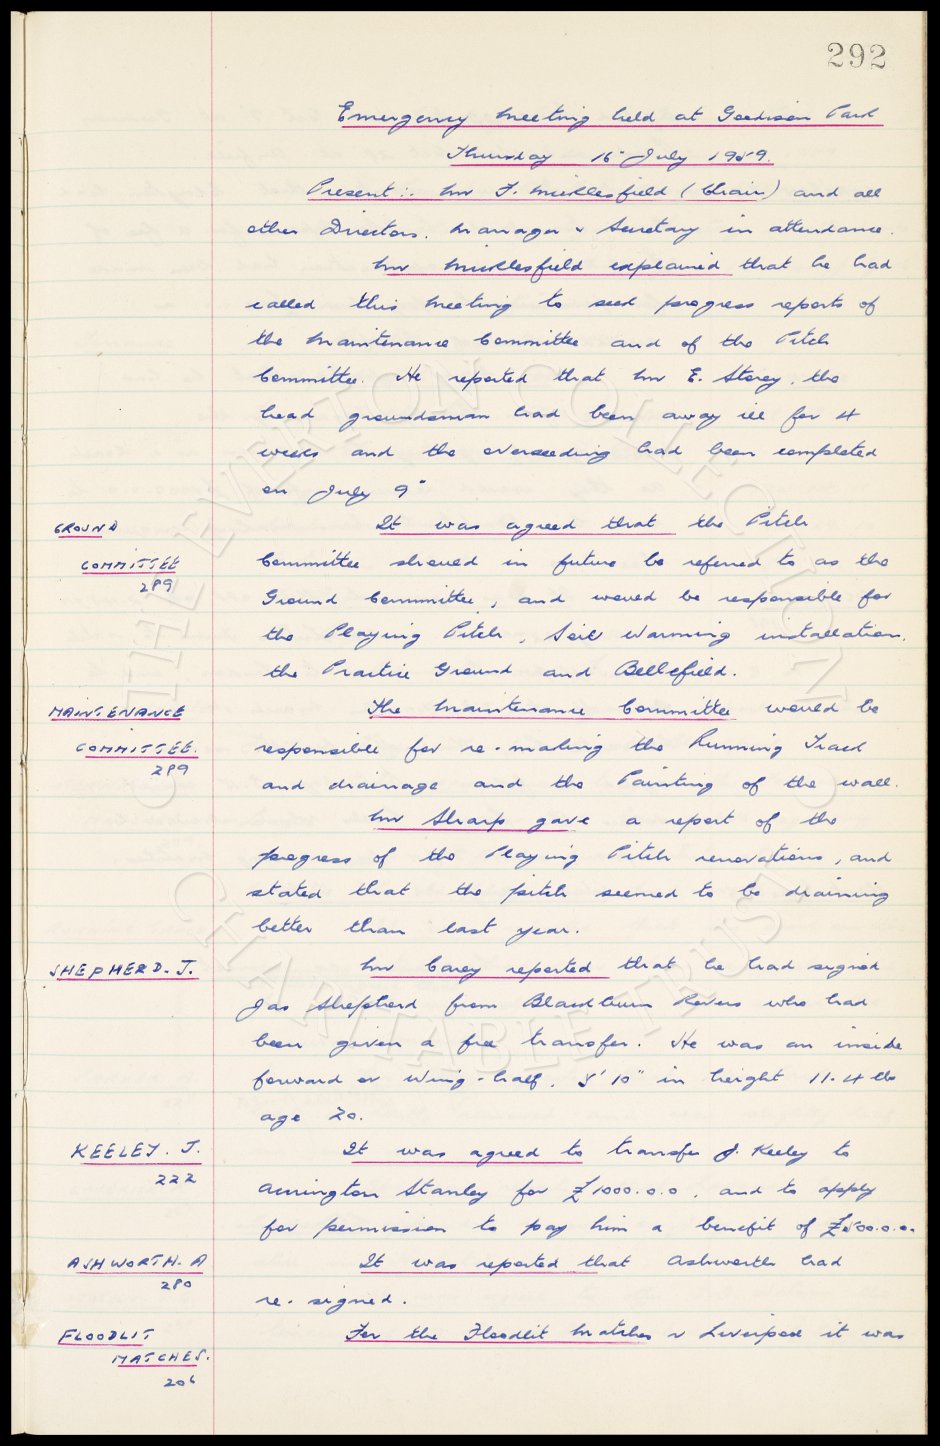 292
Emergency Meeting held at Goodison Park
Thursday 16" July 1959.
Present :- Mr F. Micklesfield (Chair) and all
other Directors. Manager & Secretary in attendance.
Mr Micklesfield explained that he had
called this Meeting to seek progress reports of
the Maintenance Committee and of the Pitch
Committee. He reported that Mr E. Storey, the
head groundsman had been away ill for 4
weeks and the overseeding had been completed
on July 9"
GROUND
COMMITTEE
289
It was agreed that the Pitch
Committee should in future be referred to as the
Ground Committee, and would be responsible for
the Playing Pitch, Soil Warming installation,
the Practice Ground and Bellefield.
MAINTENANCE
COMMITTEE.
289
The Maintenance Committee would be
responsible for re-making the Running Track
and drainage and the Painting of the wall.
Mr Sharp gave a report of the
progress of the Playing Pitch renovations, and
stated that the pitch seemed to be draining
better than last year.
SHEPHERD. J.
Mr Carey reported that he had signed
Jas Shepherd from Blackburn Rovers who had
been given a free transfer. He was an inside
forward or Wing-half. 5'10" in height 11.4 lbs
age 20.
KEELEY. J.
222
It was agreed to transfer J. Keeley to
Accrington Stanley for £1000.0.0, and to apply
for permission to pay him a benefit of £500.0.0.
ASHWORTH. A
280
It was reported that Ashworth had
re-signed.
FLOODLIT
MATCHES.
206
For the Floodlit Matches v Liverpool it was
© THE EVERTON COLLECTION
CHARITABLE TRUST